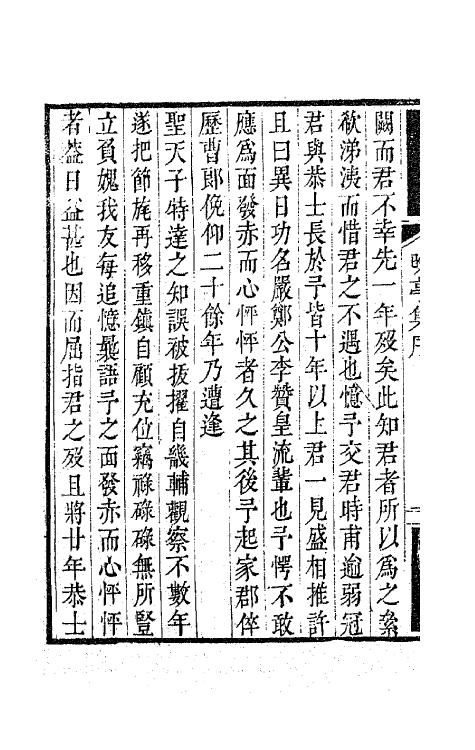 闕而君不幸先一年歿矣此知君者所以為之纍
欷涕洟而惜君之不遇也憶予交君時甫逾弱冠
君與恭士長於予皆十年以上君一見盛相推許
且曰異日功名嚴鄭公李贊皇流輩也予愕不敢
應為面發赤而心怦怦者久之其後予起家郡倅
歷曹郎俛仰二十餘年乃遭逢
聖天子特達之知誤被拔擢自畿輔觀察不數年
遂把節旄再移重鎮自顧充位竊祿碌碌無所豎
立負媿我友每追憶曩語予之面發赤而心怦怦
者益日益甚也因而屈指君之歿且將廿年恭士
集序